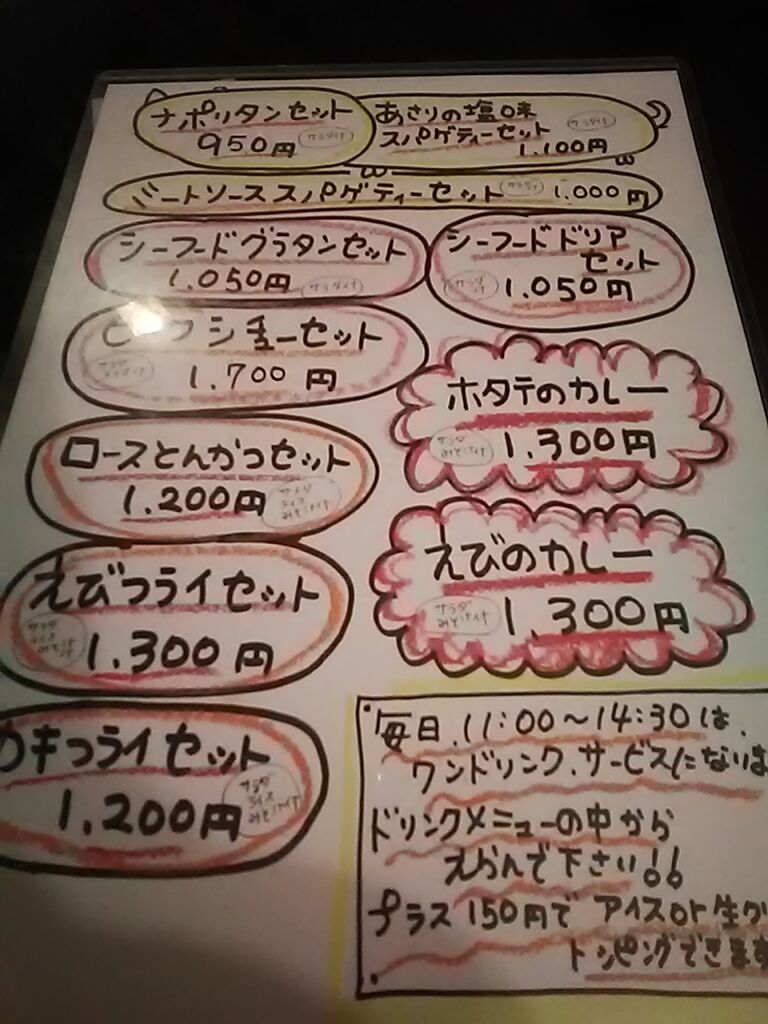 ナポリタンセット
950円 サラダ付
あさりの塩味
スパゲティーセット サラダ付
1.100円
ミートソーススパゲティーセット サラダ付 1.000円
シーフードグラタンセット
1.050円 サラダ付
シーフードドリア
セット
サラダ付 1.050円
シチューセット
1.700円
ホタテのカレー
サラダ
みそ汁付
1.300円
ロースとんかつセット
1.200円
サラダ
ライス
みそ汁付
えびのカレー
サラダ
みそ汁付
1.300円
えびフライセット
サラダ
ライス
みそ汁
付
1.300円
カキフライセット
1.200円
サラダ
ライス
みそ汁付
毎日.11:00〜14:30は、
ワンドリンク.サービスになりま
ドリンクメニューの中から
えらんで下さい!!
プラス150円でアイスor生ク
トッピングできます